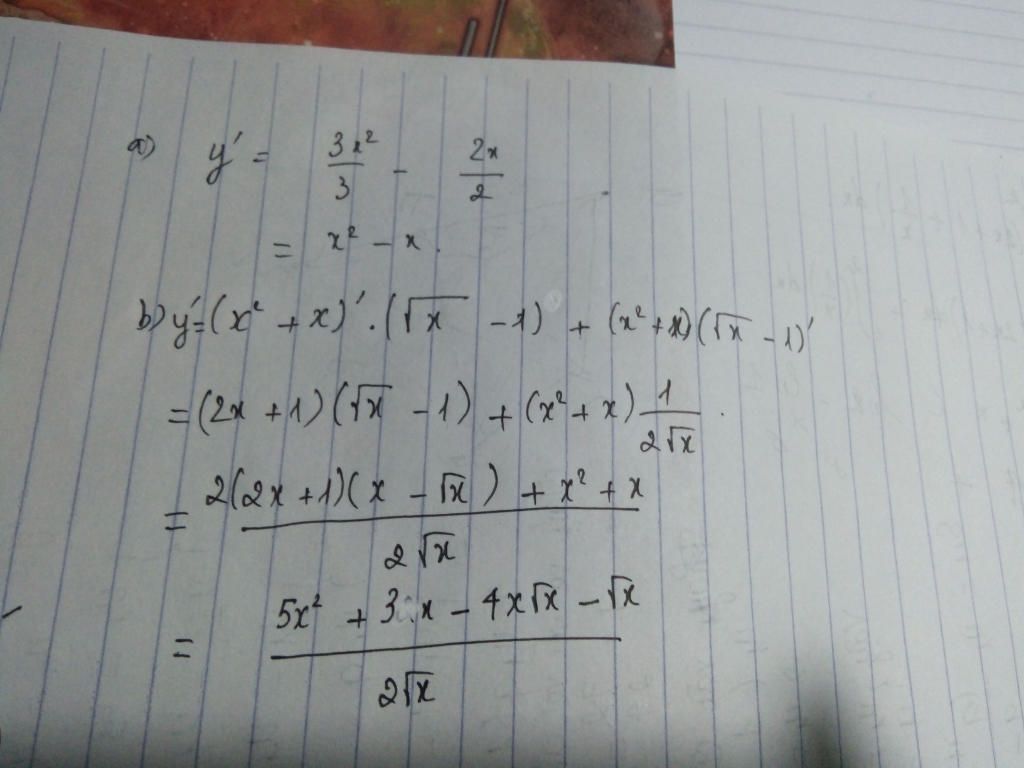 a) y' = 3x²/3 - 2x/2
= x² - x.
b) y' = (x² + x)' . (√x - 1) + (x² + x)(√x - 1)'
= (2x + 1)(√x - 1) + (x² + x) 1/2√x .
= 2(2x + 1)(x - √x) + x² + x / 2√x
= 5x² + 3x - 4x√x - √x / 2√x